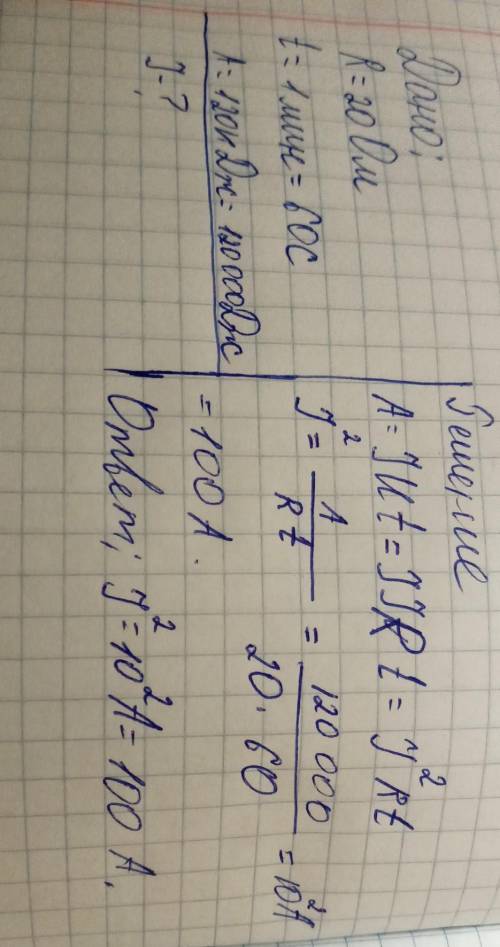 Дано:
R = 20 Ом
t = 1 мин = 60 с
A = 120 кДж = 120 000 Дж
J - ?
Решение
A = JUt = JJRt = J²Rt
J² = A/Rt = 120 000/20·60 = 10² A
= 100 A.
Ответ; J² = 10² A = 100 A.